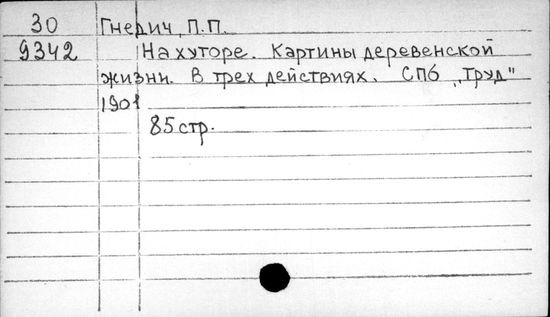 30 Гнедич, П.П.
9342 На хуторе. Картины деревенской
жизни. В трех действиях. СПб „Труд"
1901
85 стр.